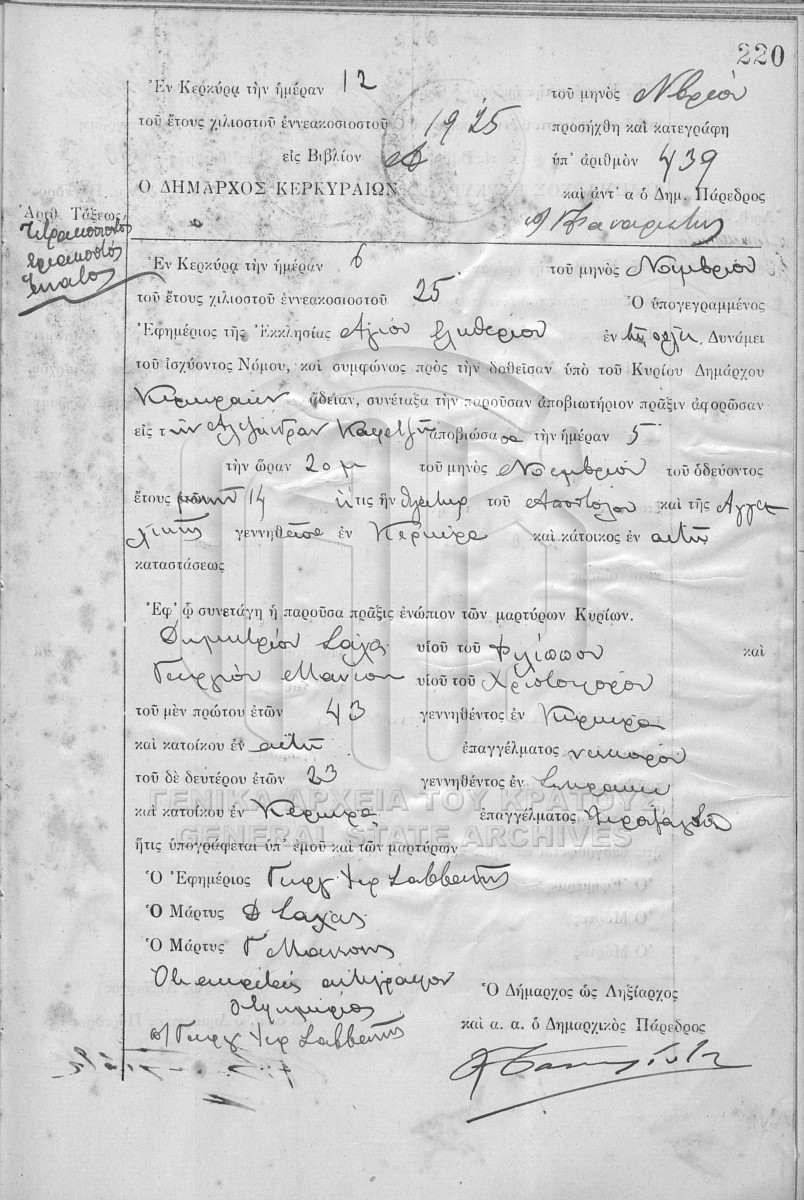 220
Ἐν Κερκύρᾳ τὴν ἡμέραν 12 τοῦ μηνὸς Νβρίου
τοῦ ἔτους χιλιοστοῦ ἐννεακοσιοστοῦ 1925 προσήχθη καὶ κατεγράφη
εἰς Βιβλίον Α ὑπ' ἀριθμὸν 439
Ὁ ΔΗΜΑΡΧΟΣ ΚΕΡΚΥΡΑΙΩΝ καὶ ἀντ' α ὁ Δημ. Πάρεδρος
Ἀριθ Τάξεως
Τετρακοσιοστὸς
τριακοστός
ἔννατος
Ἐν Κερκύρᾳ τὴν ἡμέραν 6 τοῦ μηνὸς Νοεμβρίου
τοῦ ἔτους χιλιοστοῦ ἐννεακοσιοστοῦ 25 Ὁ ὑπογεγραμμένος
Ἐφημέριος τῆς Ἐκκλησίας Ἁγίου Ἐλευθερίου ἐν τῇ πόλει. Δυνάμει
τοῦ ἰσχύοντος Νόμου, καὶ συμφώνως πρὸς τὴν δοθεῖσαν ὑπὸ τοῦ Κυρίου Δημάρχου
Κερκυραίων ἄδειαν, συνέταξα τὴν παροῦσαν ἀποβιωτήριον πρᾶξιν ἀφορῶσαν
εἰς τὴν Ἀλεξάνδραν ἀποβιώσασα τὴν ἡμέραν 5
τὴν ὥραν 2 μ τοῦ μηνὸς Νοεμβρίου τοῦ ὁδεύοντος
ἔτους 14 ἥτις ἦν θυγάτηρ τοῦ Ἀποστόλου καὶ τῆς Ἀγγε
λικῆς γεννηθεῖσα ἐν Κερκύρᾳ καὶ κάτοικος ἐν αὐτῇ
καταστάσεως
Ἐφ' ᾧ συνετάγη ἡ παροῦσα πρᾶξις ἐνώπιον τῶν μαρτύρων Κυρίων.
Δημητρίου Σαχα υἱοῦ τοῦ Φιλίππου καὶ
Γεωργίου υἱοῦ τοῦ Χριστοφόρου
τοῦ μὲν πρώτου ἐτῶν 43 γεννηθέντος ἐν Κερκύρᾳ
καὶ κατοίκου ἐν αὐτῇ ἐπαγγέλματος νεωκόρου
τοῦ δὲ δευτέρου ἐτῶν 23 γεννηθέντος ἐν
καὶ κατοίκου ἐν Κερκύρᾳ ἐπαγγέλματος
ἥτις ὑπογράφεται ὑπ' ἐμοῦ καὶ τῶν μαρτύρων
ΓΕΝΙΚΑ ΑΡΧΕΙΑ ΤΟΥ ΚΡΑΤΟΥΣ
GENERAL STATE ARCHIVES
Ὁ Ἐφημέριος Γεώργ ἱερ Σαββανῆς
Ὁ Μάρτυς Δ Σαχας
Ὁ Μάρτυς Γ
Ὅτι ἀκριβὲς ἀντίγραφον
Ὁ ἐφημέριος
Γεώργ ἱερ Σαββανῆς
Ὁ Δήμαρχος ὡς Ληξίαρχος
καὶ α. α. ὁ Δημαρχικὸς Πάρεδρος